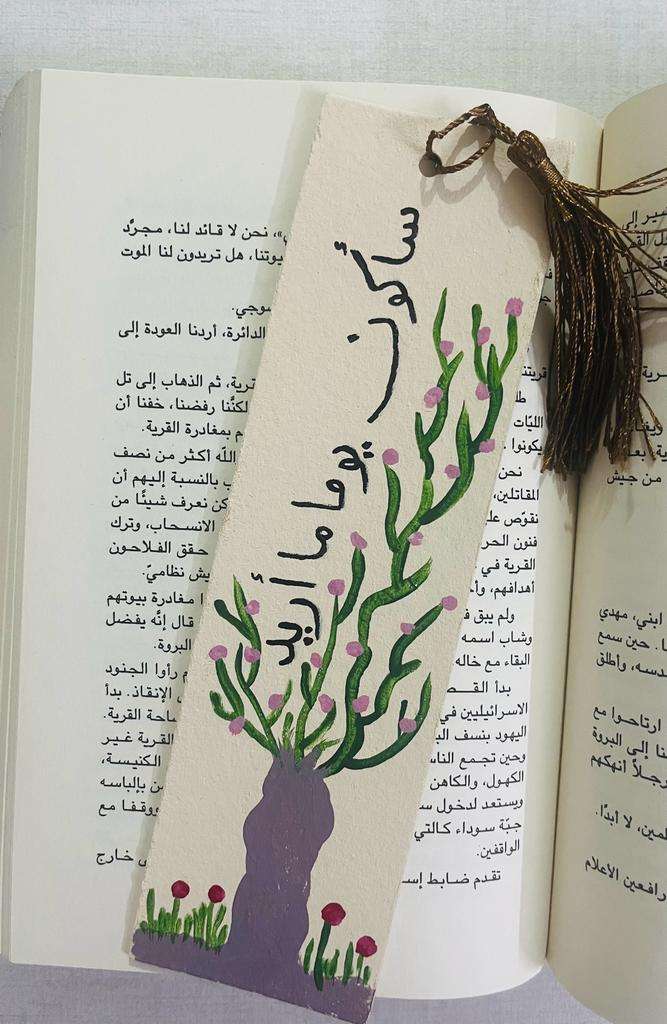 سأكون يوما ما أريد
»، نحن لا قائد لنا، مجرَّد
يوتنا، هل تريدون لنا الموت
سوجي.
الدائرة، أردنا العودة إلى
رية، ثم الذهاب إلى تل
لكنَّنا رفضنا، خفنا أن
م بمغادرة القرية.
الله أكثر من نصف
ب بالنسبة إليهم أن
كن نعرف شيئًا من
الانسحاب، وترك
حقق الفلاحون
يش نظاميّ.
ا مغادرة بيوتهم
قال إنَّه يفضل
البروة.
م رأوا الجنود
الإنقاذ. بدأ
ساحة القرية.
القرية غير
الكنيسة،
من بإلباسه
ووقفا مع
ى خارج
قريتنا
الليّات
يكونوا
نحن
المقاتلين،
نقوّض عل
فنون الحر
القرية في
أهدافهم، وأح
ولم يبق ف
وشاب اسمه
البقاء مع خاله
بدأ القصـ
الاسرائيليين في
اليهود بنسف الب
وحين تجمع الناس
الكهول، والكاهن
ويستعد لدخول سـ
جبّة سوداء كالتي
الواقفين.
تقدم ضابط إسـ
سير إلى
من جيش
ابني، مهدي
ا. حين سمع
دسه، وأطلق
ارتاحوا مع
نا إلى البروة
رجلاً أنهكهم
لمين، لا أبدًا.
رافعين الأعلام